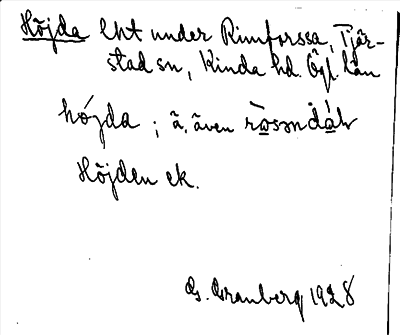 Höjda lht under Rimforssa, Tjär-
stad sn, Kinda hd. Ögl. län
hójda ; ä. även
Höjden ek.
G. Granberg 1928